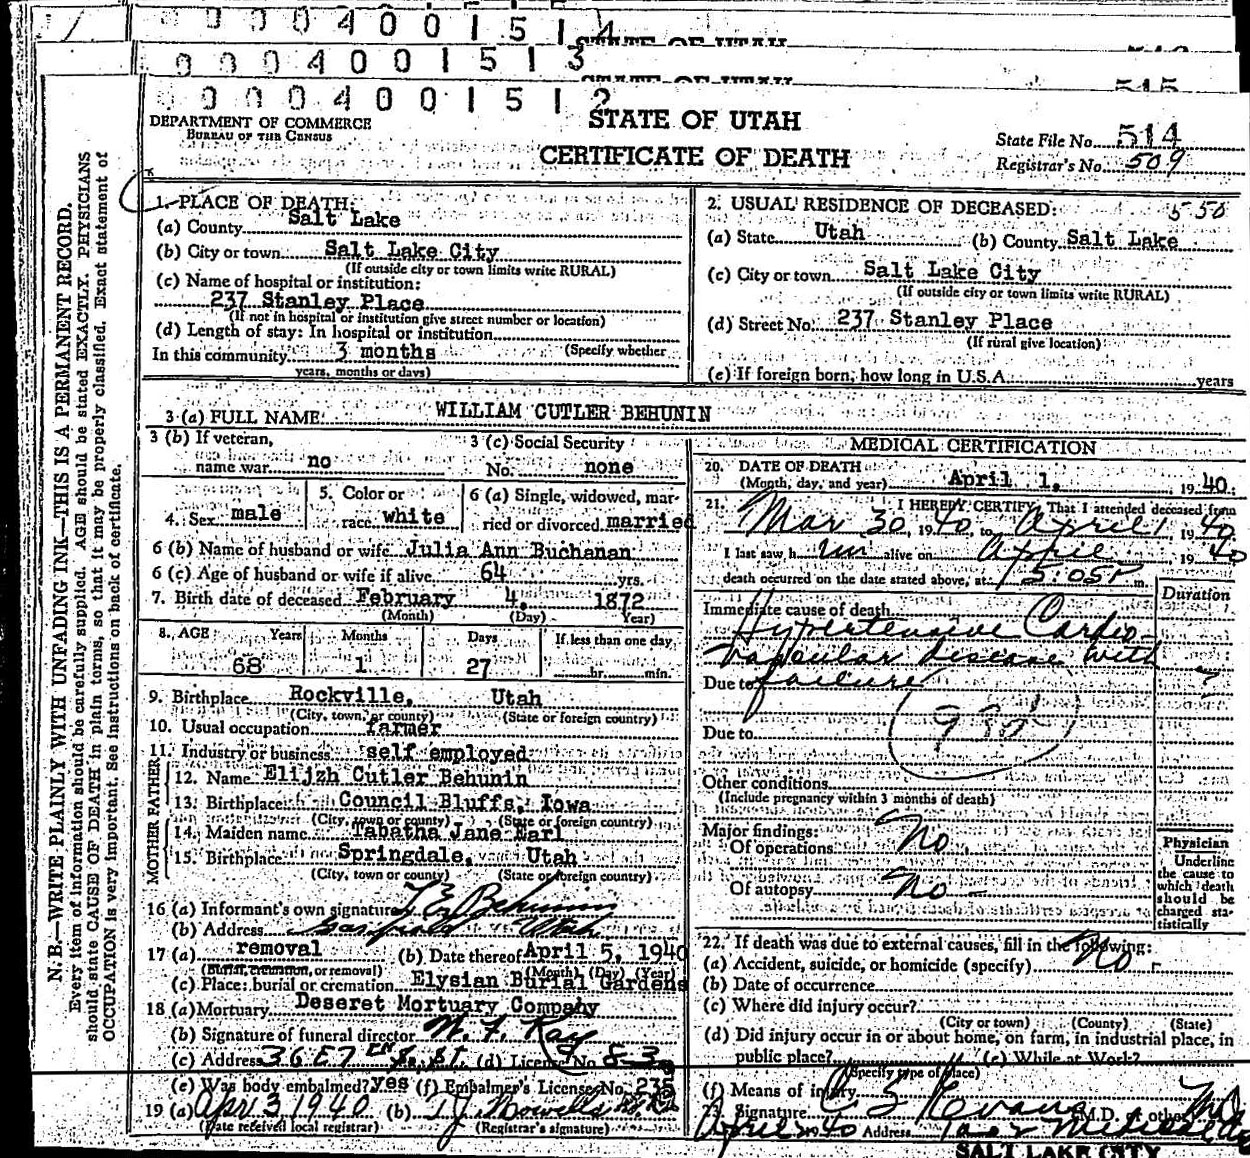 0 0 0 4 0 0 1 5 1 4
STATE OF UTAH
0 0 0 4 0 0 1 5 1 3
STATE OF UTAH
515
0 0 0 4 0 0 1 5 1 2
DEPARTMENT OF COMMERCE
BUREAU OF THE CENSUS
STATE OF UTAH
CERTIFICATE OF DEATH
State File No. 514
Registrar's No. 509
N. B.—WRITE PLAINLY WITH UNFADING INK—THIS IS A PERMANENT RECORD.
Every item of information should be carefully supplied. AGE should be stated EXACTLY. PHYSICIANS
should state CAUSE OF DEATH in plain terms, so that it may be properly classified. Exact statement of
OCCUPATION is very important. See instructions on back of certificate.
1. PLACE OF DEATH:
(a) County Salt Lake
(b) City or town Salt Lake City
(If outside city or town limits write RURAL)
(c) Name of hospital or institution:
237 Stanley Place
(If not in hospital or institution give street number or location)
(d) Length of stay: In hospital or institution
In this community 3 months (Specify whether
years, months or days)
2. USUAL RESIDENCE OF DECEASED: 550
(a) State Utah (b) County Salt Lake
(c) City or town Salt Lake City
(If outside city or town limits write RURAL)
(d) Street No. 237 Stanley Place
(If rural give location)
(e) If foreign born, how long in U.S.A. years
3 (a) FULL NAME WILLIAM CUTLER BEHUNIN
3 (b) If veteran,
name war no
3 (c) Social Security
No. none
4. Sex male
5. Color or
race white
6 (a) Single, widowed, mar-
ried or divorced married
6 (b) Name of husband or wife Julia Ann Buchanan
6 (c) Age of husband or wife if alive 64 yrs.
7. Birth date of deceased February 4, 1872
(Month) (Day) (Year)
8. AGE Years Months Days If less than one day
68 1 27 hr. min.
9. Birthplace Rockville, Utah
(City, town, or county) (State or foreign country)
10. Usual occupation farmer
11. Industry or business self employed
FATHER
12. Name Elijzh Cutler Behunin
13. Birthplace Council Bluffs, Iowa
(City, town or county) (State or foreign country)
MOTHER
14. Maiden name Tabatha Jane Earl
15. Birthplace Springdale, Utah
(City, town or county) (State or foreign country)
16 (a) Informant's own signature Behunin
(b) Address Utah
17 (a) removal (b) Date thereof April 5, 1940
(Burial, cremation, or removal) (Month) (Day) (Year)
(c) Place: burial or cremation Elysian Burial Gardens
18 (a) Mortuary Deseret Mortuary Company
(b) Signature of funeral director W. F. Kay
(c) Address 36 E 7 (d) License No 8-3
(e) Was body embalmed? yes (f) Embalmer's License No. 235
19 (a) Apr 3 1940 (b)
(Date received local registrar) (Registrar's signature)
MEDICAL CERTIFICATION
20. DATE OF DEATH
(Month, day, and year) April 1, 19 40.
21. I HEREBY CERTIFY, That I attended deceased from
Mar 30, 19 40, to April 1, 19 40
I last saw him alive on April 19 40
death occurred on the date stated above, at 5:05P m.
Duration
Immediate cause of death
Hypertensive Cardio-
vascular disease with
Due to failure ?
Due to
Other conditions
(Include pregnancy within 3 months of death)
Major findings:
Of operations No
Of autopsy No -
Physician
Underline
the cause to
which death
should be
charged sta-
tistically
22. If death was due to external causes, fill in the following:
(a) Accident, suicide, or homicide (specify) No
(b) Date of occurrence
(c) Where did injury occur?
(City or town) (County) (State)
(d) Did injury occur in or about home, on farm, in industrial place, in
public place? (e) While at Work?
(Specify type of place)
(f) Means of injury
23. Signature Evans M.D. or other MD
Address
SALT LAKE CITY